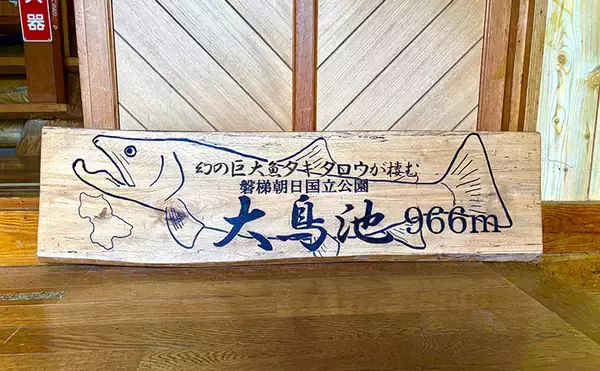 器
幻の巨大魚タキタロウが棲む
磐梯朝日国立公園
大鳥池 966m